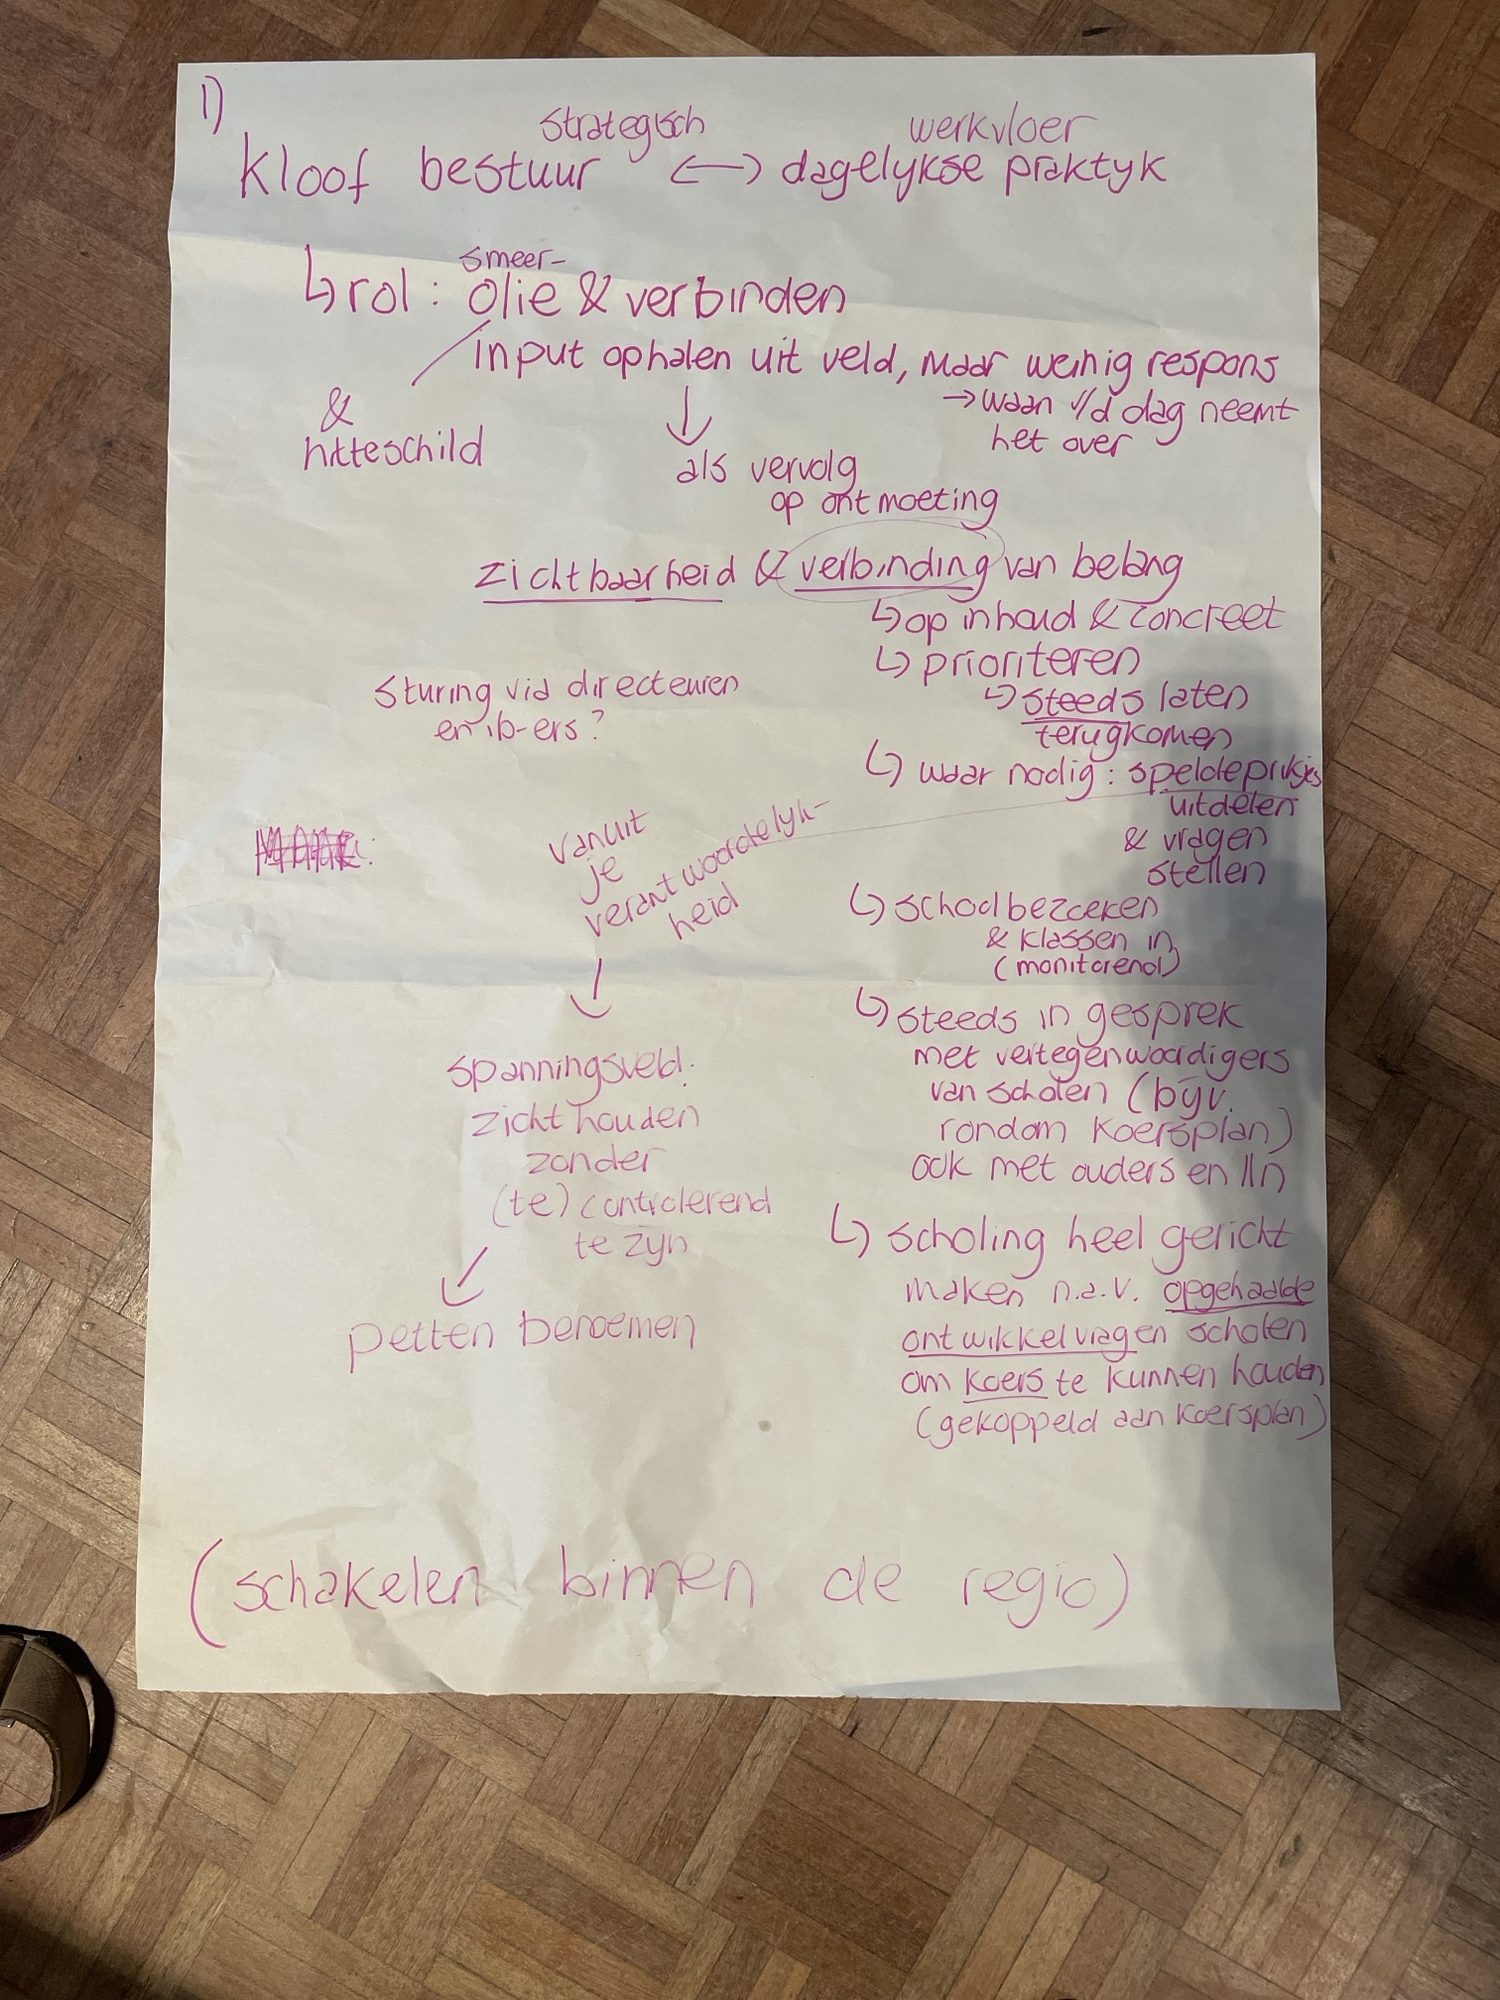 1)
strategisch werkvloer
kloof bestuur <--> dagelykse praktyk
↳ rol: smeer-
olie & verbinden
input ophalen uit veld, maar weinig respons
→ waan v/d dag neemt
het over
&
hitteschild
als vervolg
op ontmoeting
zichtbaarheid & verbinding van belang
↳ op inhoud & concreet
↳ prioriteren
↳ steeds laten
terugkomen
sturing via directeuren
en ib-ers?
↳ waar nodig: speldeprikjes
uitdelen
& vragen
stellen
vanuit
je
verantwoordelyk-
heid
↳ schoolbezoeken
& klassen in
(monitorend)
↳ steeds in gesprek
met vertegenwoordigers
van scholen (bijv.
rondom koersplan)
ook met ouders en lln
spanningsveld:
zicht houden
zonder
(te) controlerend
te zyn
petten benoemen
↳ scholing heel gericht
maken n.a.v. opgehaalde
ontwikkelvragen scholen
om koers te kunnen houden
(gekoppeld aan koersplan)
(schakelen binnen de regio)